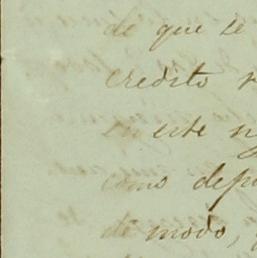 de que se
credito
en este
como
de modo,